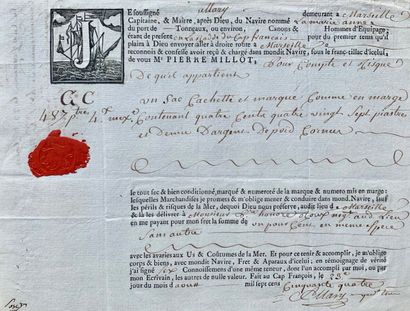 allary
JE soussigné demeurant à Marseille
Capitaine, & Maître, après Dieu, du Navire nommé la marie anne
du port de Tonneaux, ou environ, Canons & Hommes d'Equipage;
étant de présent Cap français pour du premier tems qu'il
plaira à Dieu envoyer aller à droite route à Marseille
reconnois & confesse avoir reçû & chargé dans mondit Navire, sous le franc-tillac d'icelui,
de vous Mr PIERRE MILLOT, Pour Compte et Risque
De qu'il appartient
C C
487 ptre 4
un Sac Cachetté et marqué Comme en marge
Contenant quatre Cents quatre vingt Sept piastre
et Demie D'argent De poid
le tout sec & bien conditionné, marqué & numeroté de la marque & numero mis en marge:
lesquelles Marchandises je promets & m'oblige mener & conduire dans mondit Navire, sauf
les périls & risques de la Mer, dequoi Dieu nous préserve, audit lieu de Marseille
& là les délivrer à Monsieur honoré
en me payant pour mon fret la somme de un pour Cent, en même
Sans autre
avec les avaries aux Us & Coûtumes de la Mer. Et pour ce tenir & accomplir, je m'oblige
corps & biens, avec mondit Navire, Fret & Aparaux d'icelui; en témoignage de vérité
j'ai signé six Connoissemens d'une même teneur, dont l'un accompli par moi, ou par
mon Ecrivain, les autres de nulle valeur. Fait au Cap François, le 23e
jour du mois d'aoust mil sept cens Cinquante quatre